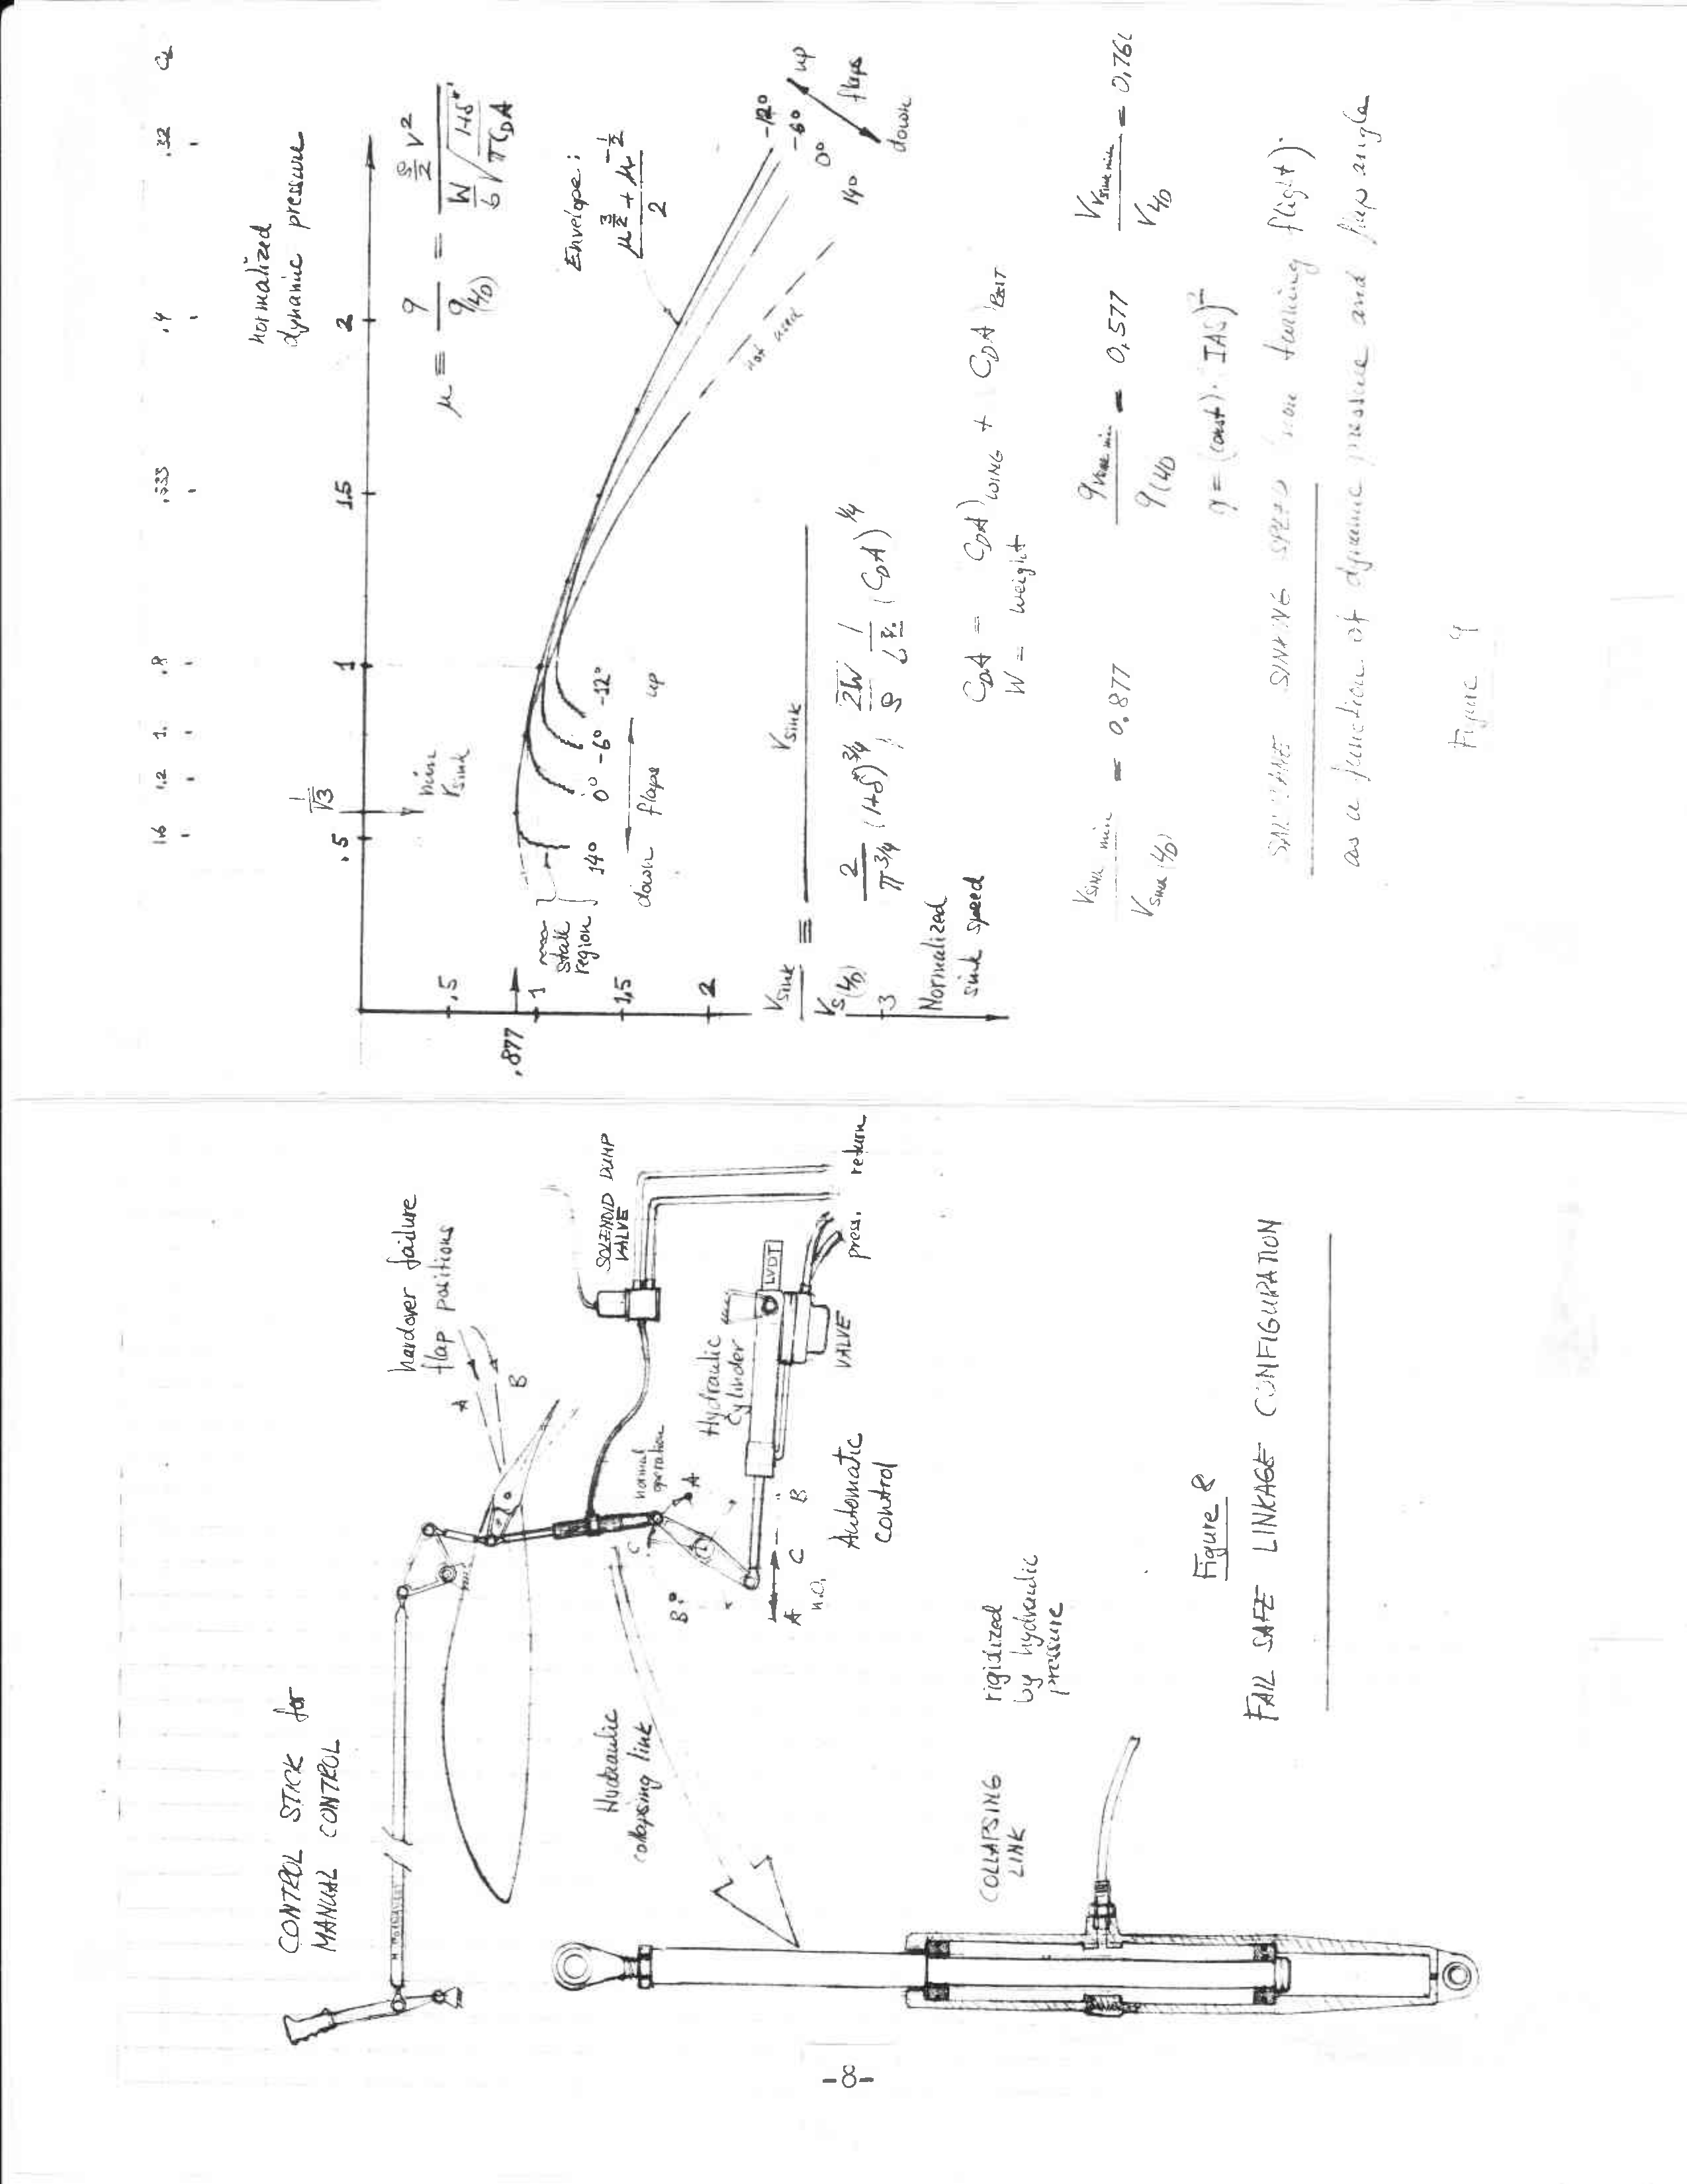 -8-
CONTROL STICK for
MANUAL CONTROL
handover failure
flap positions
A
B
Hydraulic
collapsing link
SOLENOID DUMP
VALVE
normal
operation
C
A
B
Hydraulic
Cylinder
LVDT
VALVE
press. return
A C B
n.O.
Automatic
control
COLLAPSING
LINK
rigidized
by hydraulic
pressure
Figure 8
FAIL SAFE LINKAGE CONFIGURATION
1.6 1.2 1. .8 .533 .4 .32 CL
normalized
dynamic pressure
1/√3
.5 1 1.5 2
min
Vsink
μ ≡ q / q(L/D) = ρ/2 V² / (W/b √(1+δ* / π CDA))
Envelope:
(μ^3/2 + μ^-1/2) / 2
.877
.5
1
1,5
2
3
stall
region
14° 0° -6° -12°
down flaps up
not used
-12°
-6°
0°
14°
up
flaps
down
Vsink / Vs(L/D) ≡ Vsink / 2/π^3/4 (1+δ*)^3/4 √ 2W/ρ 1/b^3/2 (CDA)^1/4
Normalized
sink speed
CDA = CDA)WING + CDA)REST
W = weight
Vsink min / Vsink (L/D) = 0.877 qVsink min / q(L/D) = 0.577 VVsink min / VL/D = 0,76
q = (const) · (IAS)²
SAILPLANE SINKING SPEED (non turning flight)
as a function of dynamic pressure and flap angle
Figure 9